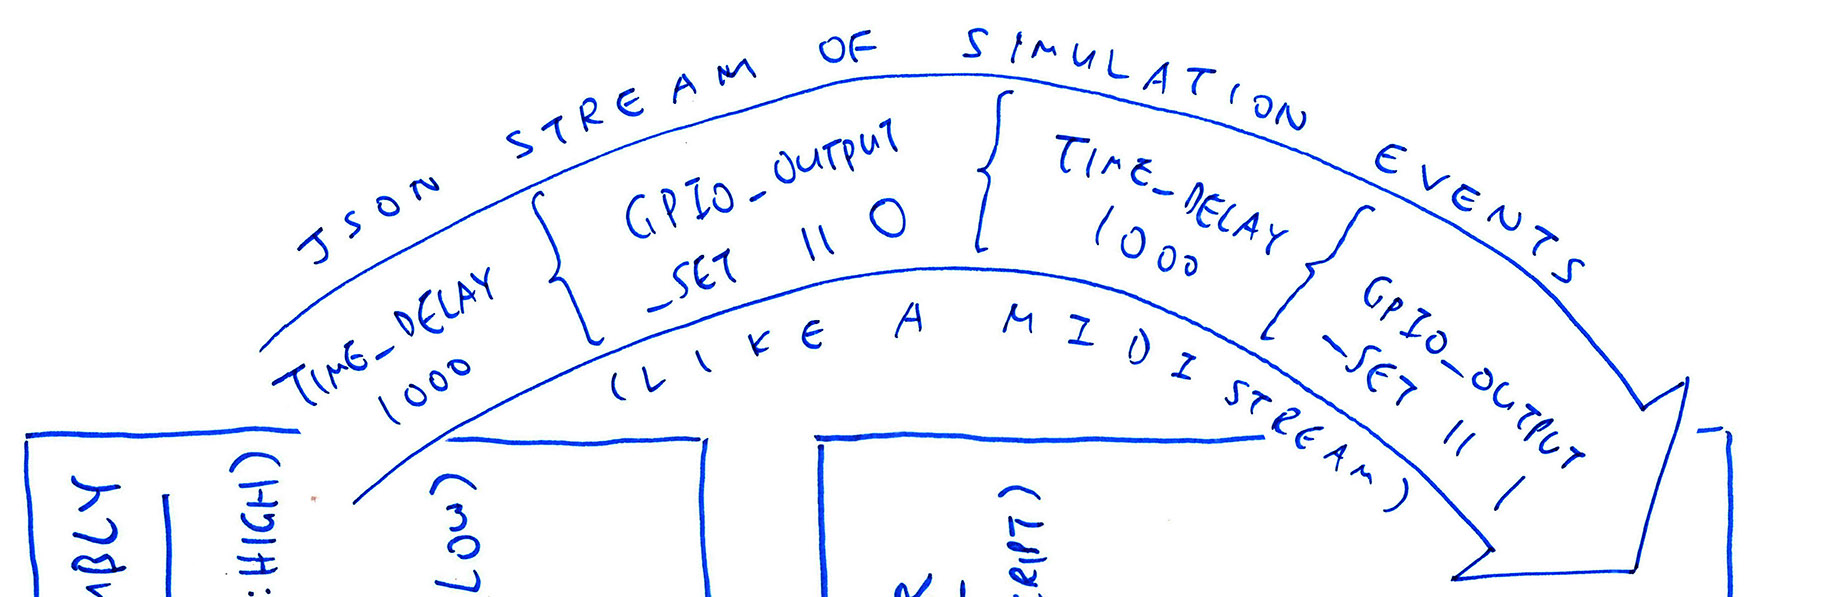 JSON STREAM OF SIMULATION EVENTS
TIME_DELAY
1000
{
GPIO_OUTPUT
_SET 11 0
{
TIME_DELAY
1000
{
GPIO_OUTPUT
_SET 11 1
(LIKE A MIDI STREAM)
:HIGH)
LOW)